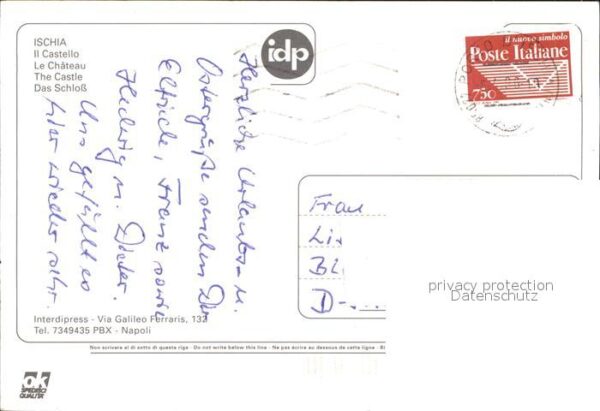 ISCHIA
Il Castello
Le Château
The Castle
Das Schloß
idp
il nuovo simbolo
Poste Italiane
750
Herzliche Urlaubs- u.
Ostergrüße senden Dir
Elfriede, Franz sowie
Hedwig u. Dieter.
Uns gefällt es
hier wieder sehr.
Frau
Lis
BL
D-
privacy protection
Datenschutz
Interdipress - Via Galileo Ferraris, 132
Tel. 7349435 PBX - Napoli
Non scrivere al di sotto di questa riga - Do not write below this line - Ne pas écrire au dessous de cette ligne
ok
SPEDISCI
QUALITÀ